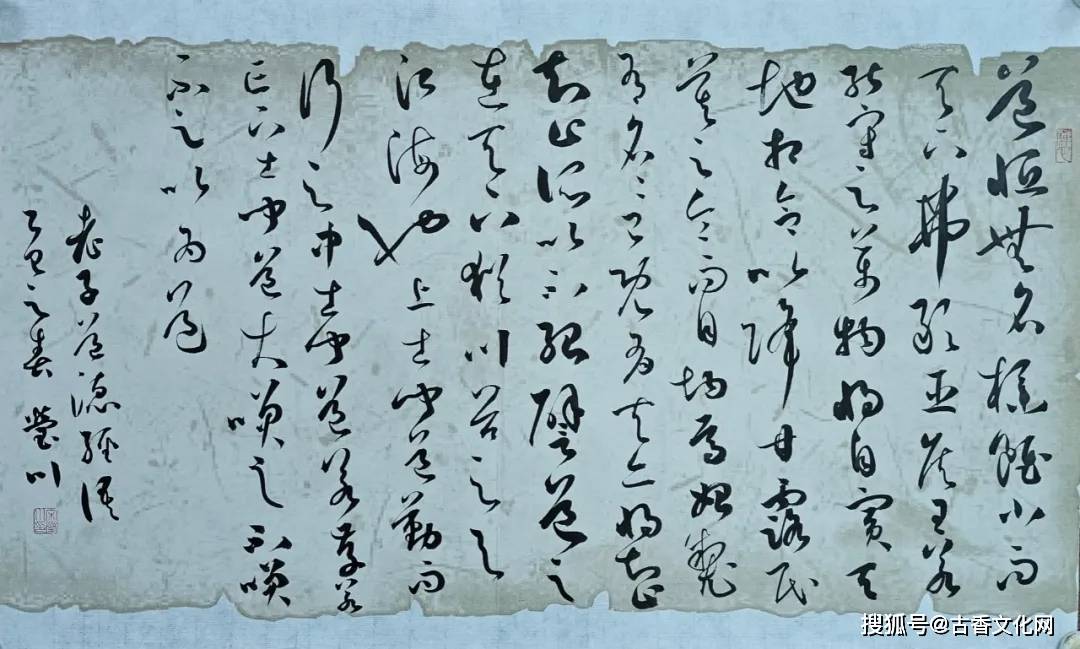 道恒無名樸雖小而
天下弗敢臣侯王若
能守之萬物將自賓天
地相合以降甘露民
莫之令而自均焉始制
有名名亦既有夫亦將知止
知止所以不殆譬道之
在天下猶川谷之與
江海也上士聞道勤而
行之中士聞道若存若
亡下士聞道大笑之不笑
不足以為道
老子道德經
乙巳之春 瑩川
搜狐号@古香文化网